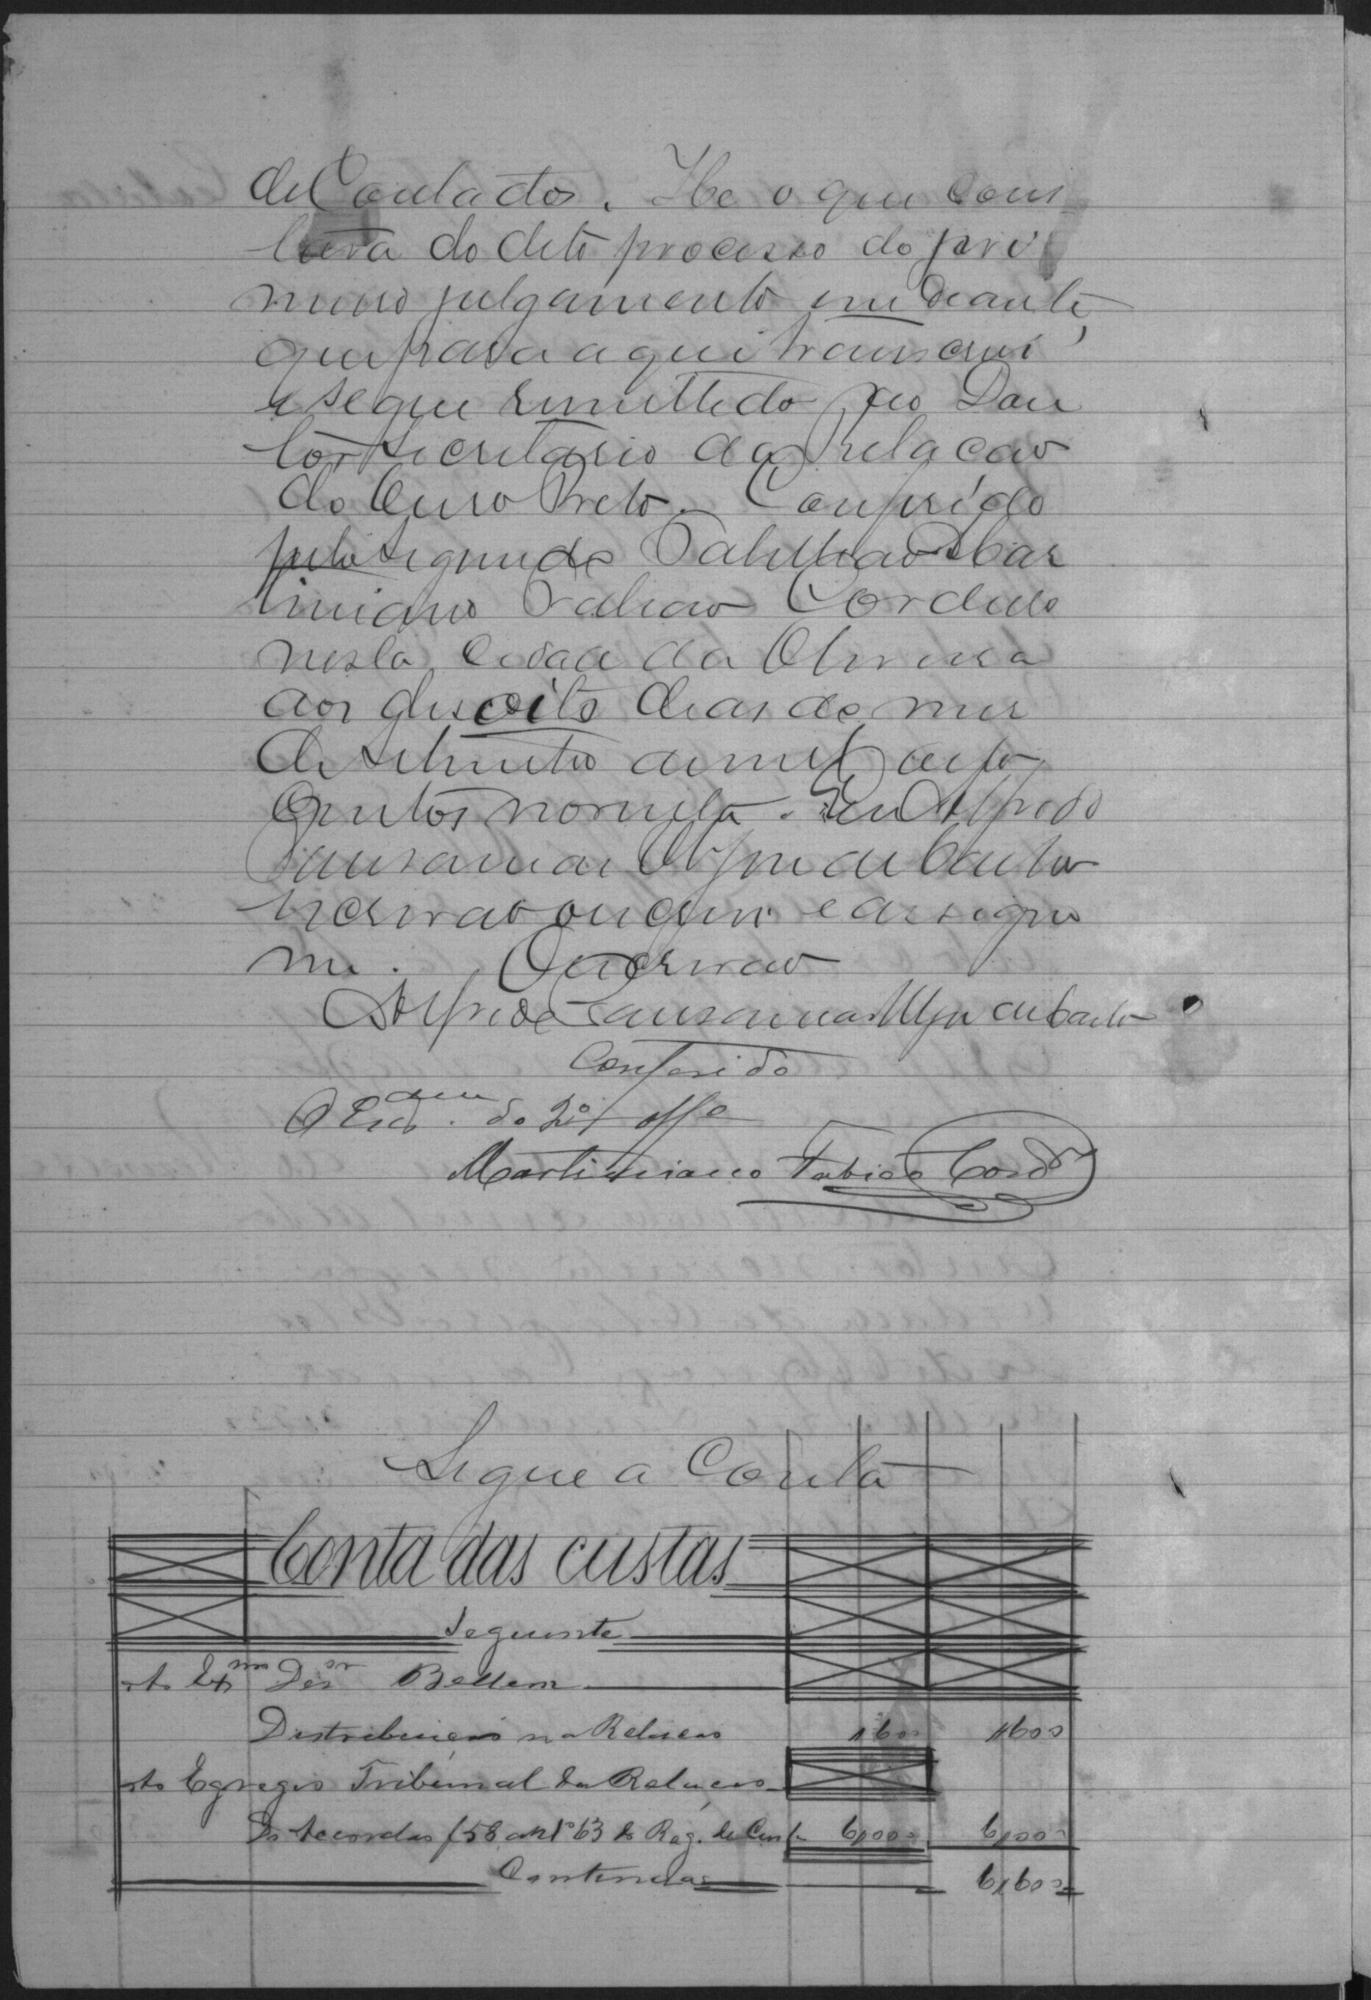 de Contados. He o que cons
tava do dito processo do pri
meiro julgamento em deante,
que para aqui transcrevi
e segue remettido ao Dou
tor Secretario da Relacao
do Ouro Preto. Conferido
pelo Segundo Tabelliao Mar
tiniano Fabiao Cordeiro
nesta Cidade da Oliveira
aos desoito dias do mes
de Setembro de mil oito
centos noventa. Eu Alfredo
Pausanias de Castro
escrivao escrevi e assigno
me. O Escrivao
Alfredo Pausanias de Castro
Conferido
O Escr.am do 2º Offo
Martiniano Fabião Cordro
Segue a Conta
Conta das custas
Seguinte
Ao Exmo Desor Bellem
Distribuição na Relação 1600 1600
Ao Egregio Tribunal da Relação
Do Accordão f 58 art 63 do Reg. de Cust 6,000 6,000
Continúa 6,600